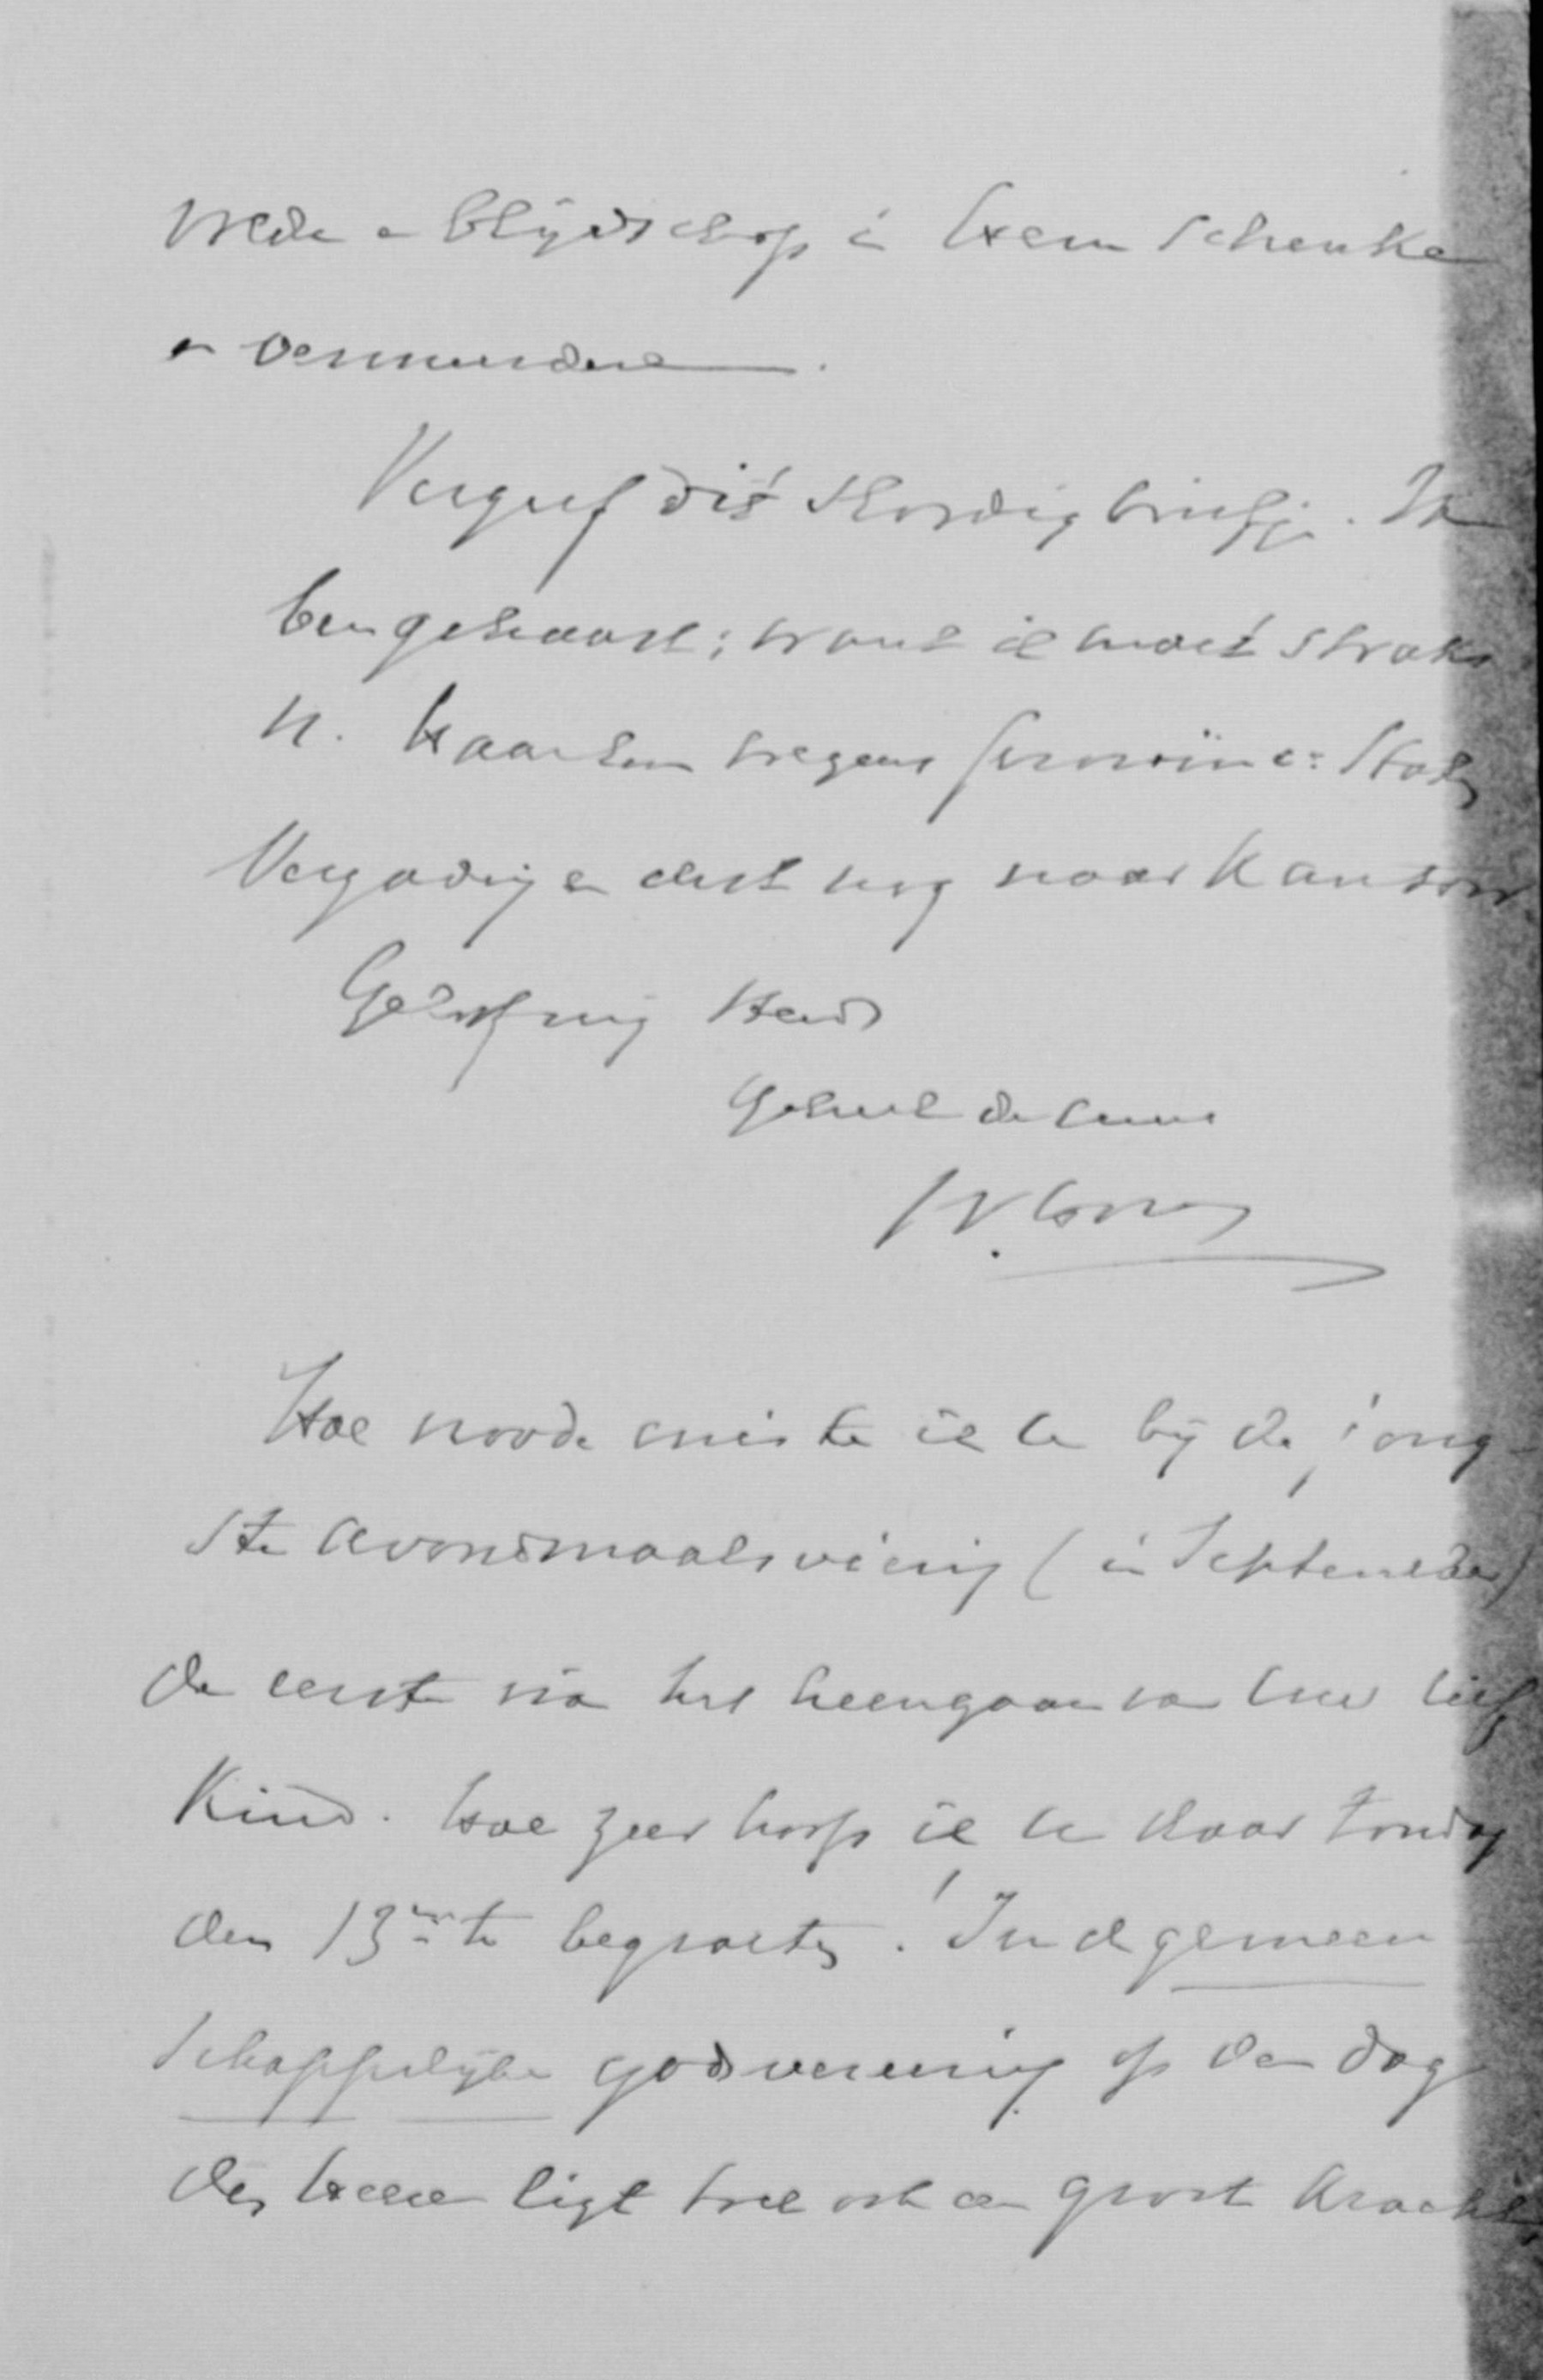 vrede en blijdschap in Hem schenke
en vermeerdere.
Vergeef dit slordig briefje. Ik
ben gehaast; want ik moet straks
n. Haarlem wegens Provinc: Stat
Vergadering en eerst nog naar Kantoor
Geloof mij steeds
Geheel de Uwe
Hoe noode miste ik U bij de jong-
ste avondmaalsviering (in September)
de eerste na het heengaan van Uw lief
Kind. Hoe zeer hoop ik U daar Zondag
den 13en te begroeten! In de gemeen
schappelijke godsvereering op den dag
des Heeren ligt toch ook een groote kracht